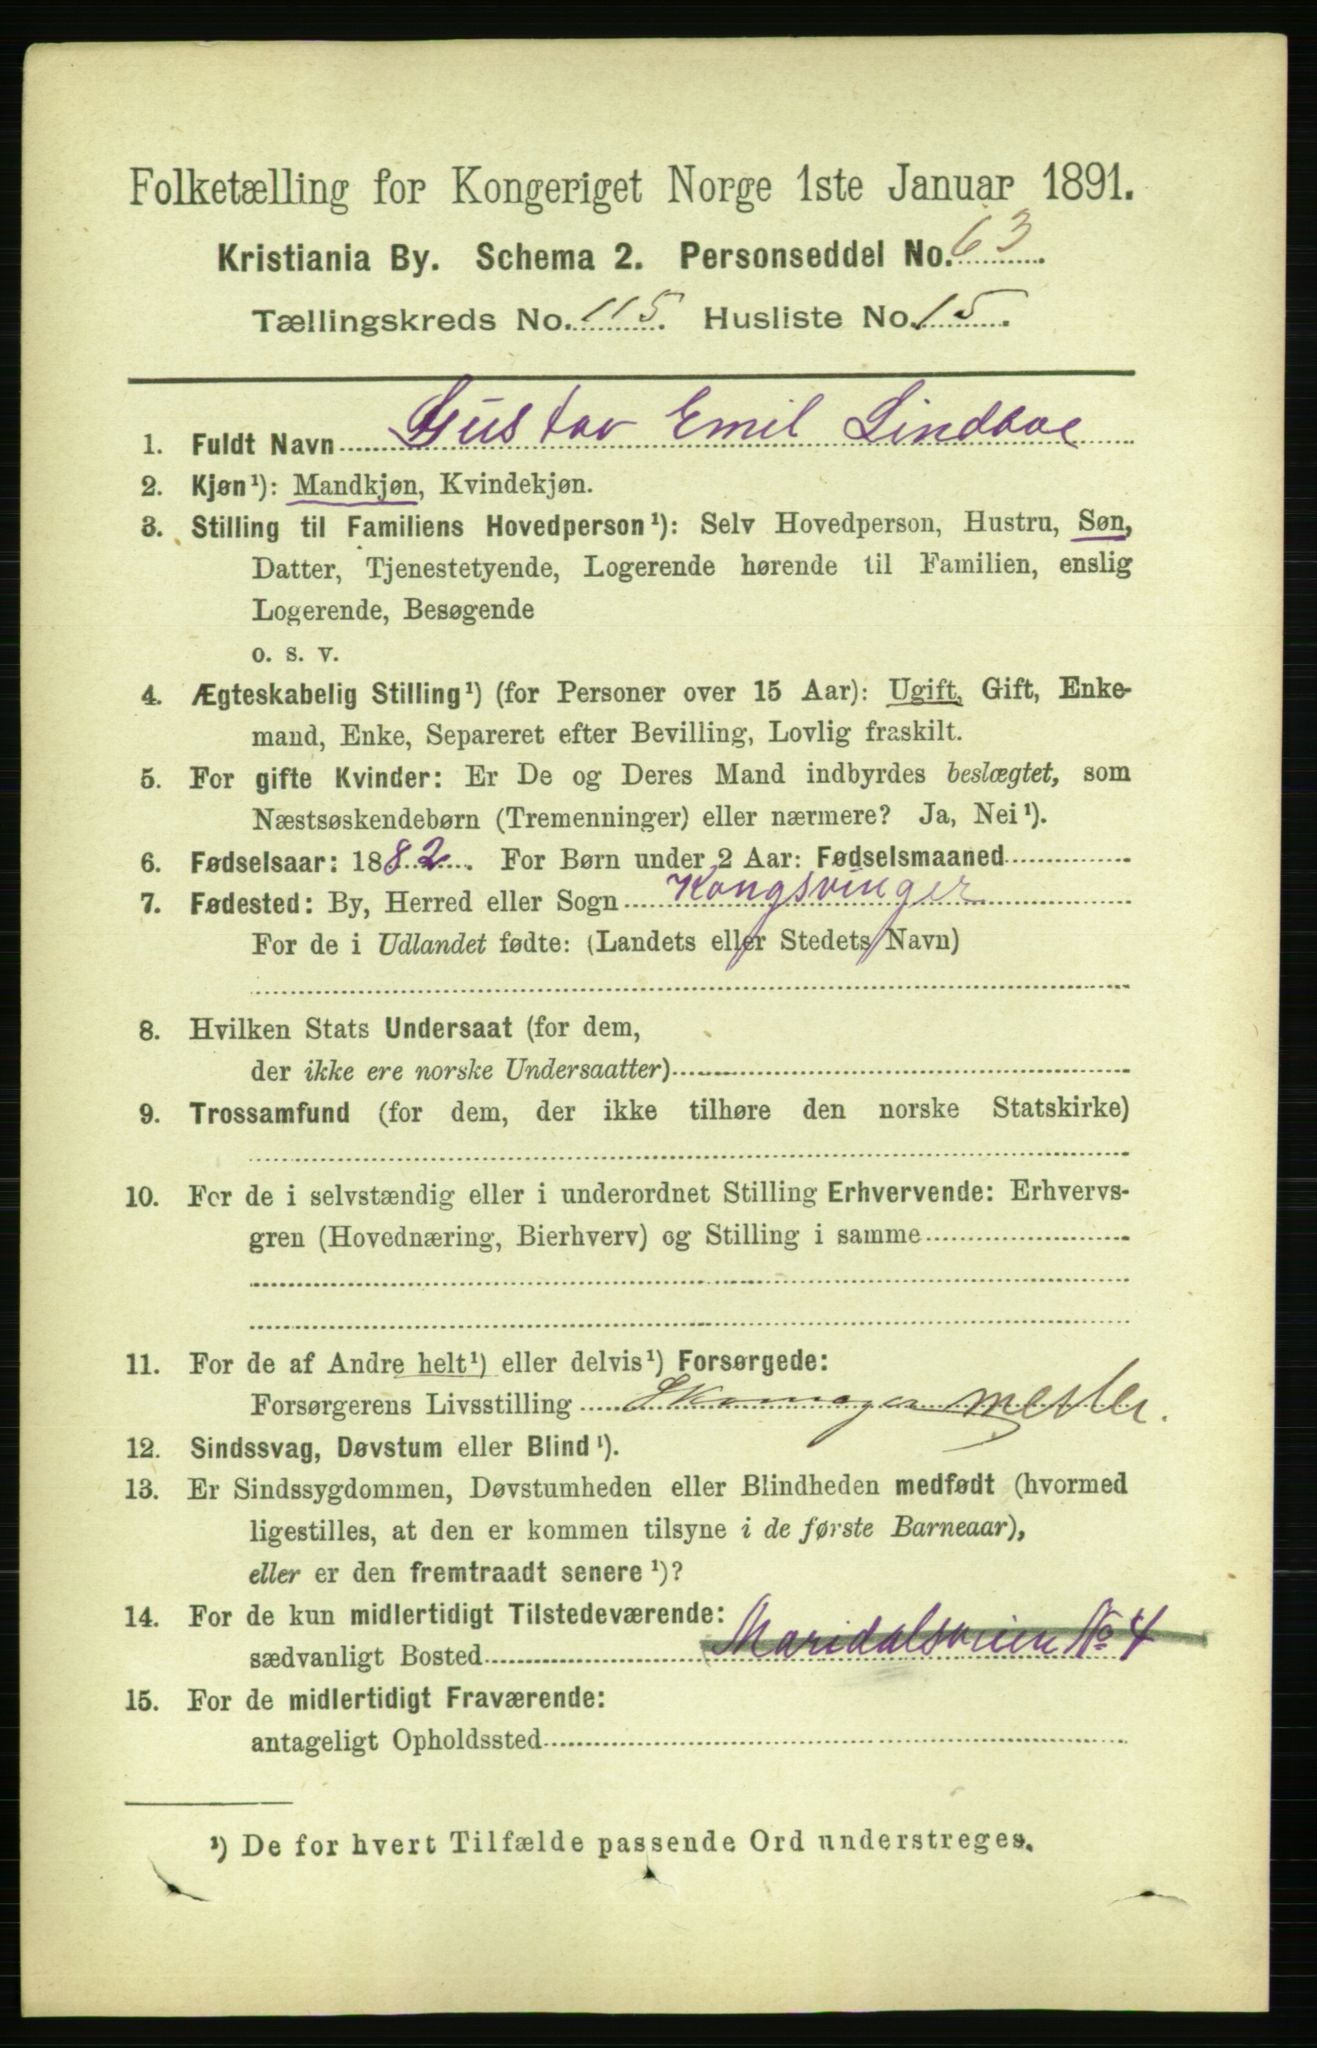 Folketælling for Kongeriget Norge 1ste Januar 1891.
Kristiania By. Schema 2. Personseddel No. 63.
Tællingskreds No. 115. Husliste No. 15.
1. Fuldt Navn Gustav Emil Lindboe
2. Kjøn¹): Mandkjøn, Kvindekjøn.
3. Stilling til Familiens Hovedperson¹): Selv Hovedperson, Hustru, Søn,
Datter, Tjenestetyende, Logerende hørende til Familien, enslig
Logerende, Besøgende
o. s. v.
4. Ægteskabelig Stilling¹) (for Personer over 15 Aar): Ugift, Gift, Enke-
mand, Enke, Separeret efter Bevilling, Lovlig fraskilt.
5. For gifte Kvinder: Er De og Deres Mand indbyrdes beslægtet, som
Næstsøskendebørn (Tremenninger) eller nærmere? Ja, Nei¹).
6. Fødselsaar: 1882. For Børn under 2 Aar: Fødselsmaaned
7. Fødested: By, Herred eller Sogn Kongsvinger
For de i Udlandet fødte: (Landets eller Stedets Navn)
8. Hvilken Stats Undersaat (for dem,
der ikke ere norske Undersaatter)
9. Trossamfund (for dem, der ikke tilhøre den norske Statskirke)
10. For de i selvstændig eller i underordnet Stilling Erhvervende: Erhvervs-
gren (Hovednæring, Bierhverv) og Stilling i samme
11. For de af Andre helt¹) eller delvis¹) Forsørgede:
Forsørgerens Livsstilling Skomagermester.
12. Sindssvag, Døvstum eller Blind¹).
13. Er Sindssygdommen, Døvstumheden eller Blindheden medfødt (hvormed
ligestilles, at den er kommen tilsyne i de første Barneaar),
eller er den fremtraadt senere¹)?
14. For de kun midlertidigt Tilstedeværende:
sædvanligt Bosted Maridalsveien No 4
15. For de midlertidigt Fraværende:
antageligt Opholdssted
¹) De for hvert Tilfælde passende Ord understreges.